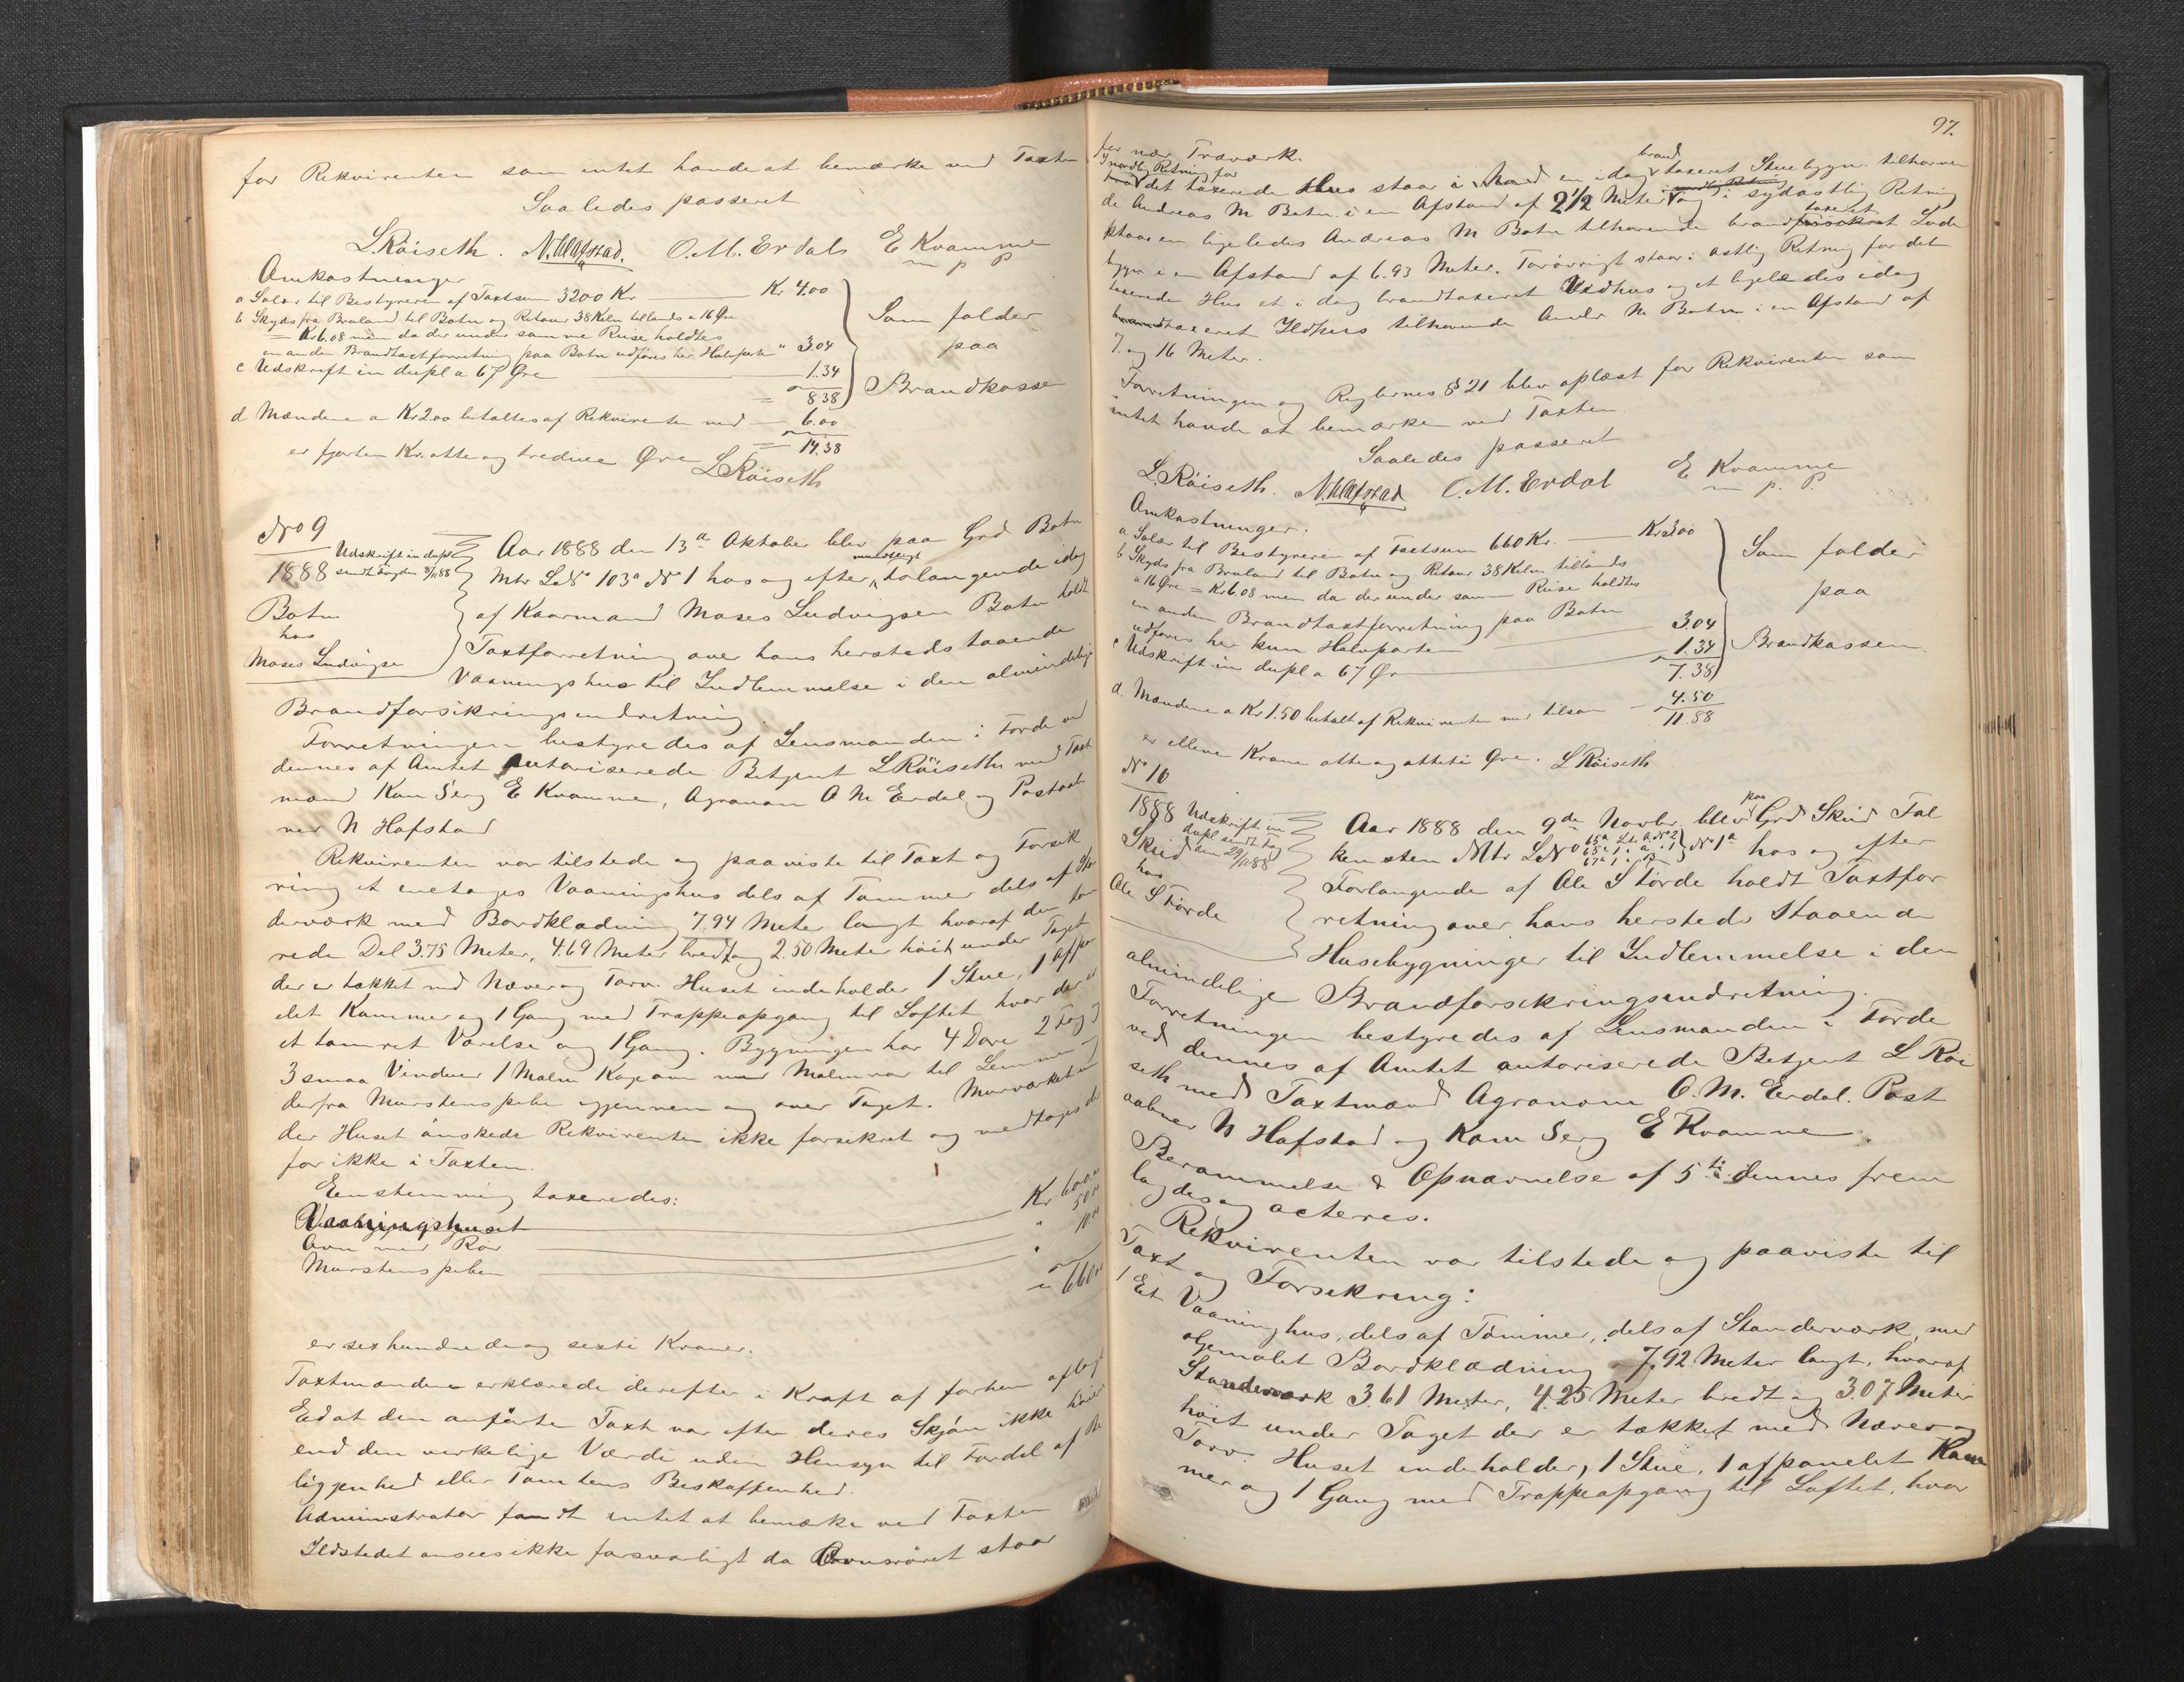 for Rekvirenten som intet havde at bemærke ved Taxten
Saaledes passeret
L. Röiseth. N. Hafstad. O. M. Erdal E Kvamme
m p P
Omkostninger
a Salær til Bestyreren af Taxtsum 3200 Kr Kr 4.00
b Skyds fra Bruland til Botn og Retour 38 Kilm tillands a 16 Øre
= Kr 6.08 men da der under samme Reise holdtes
en anden Brandtaxtforretning paa Botn udføres her Halvparten " 3.04
c Udskrift in dupl a 67 Øre 1.34
= 8.38
Som falder
paa
Brandkasse
d Mændene a Kr 2.00 betaltes af Rekvirenten med 6.00
= 14.38
er fjorten Kr. otte og tredive Øre L Röiseth
No 9
1888
Udskrift in dupl
sendt Fogden 8/11 88
Botn
hos
Moses Ludvigse
Aar 1888 den 13de Oktober blev paa Grd Botn
Mtr LNo 103a No 1 hos og efter mundtligt Forlangende idag
af Kaarmand Moses Ludvigsen Botn holdt
Taxtforretning over hans hersteds staaende
Vaaningshus til Indlemmelse i den almindelige
Brandforsikringsindretning.
Forretningen bestyredes af Lensmanden i Førde ved
dennes af Amtet autoriserede Betjent L Röiseth med Taxt
mænd Kom Serg E Kvamme, Agronom O M Erdal og Postaab
ner N Hafstad
Rekvirenten var tilstede og paaviste til Taxt og Forsik
ring et enetages Vaaningshus dels af Tømmer dels af Stæn
derværk med Bordklædning 7.94 Meter langt hvoraf den tøm
rede Del 3.75 Meter, 4.69 Meter bredt og 2.50 Meter høit under Taget
der er tækket med Næver og Torv. Huset indeholder 1 Stue, 1 afpa
elet Kammer og 1 Gang med Trappeopgang til Loftet hvor der er
et tømret Værelse og 1 Gang. Bygningen har 4 Døre 2 Fag og
3 smaa Vinduer 1 Malm Kogeovn med Malmrør til Lemmen og
derfra Murstenspibe igjennem og over Taget. Murværket un
der Huset ønskede Rekvirenten ikke forsikret og medtages der
for ikke i Taxten.
Eenstemmig taxeredes:
Vaaningshuset Kr 600.00
Ovn med Rør " 50.00
Murstenspiben " 10.00
= 660.00
er sexhundrede og sexti Kroner.
Taxtmændene erklærede derefter i Kraft af forhen aflagt
Ed at den anførte Taxt var efter deres Skjøn ikke høiere
end den virkelige Værdi uden Hensyn til Fordel af Be
liggenhed eller Tomtens Beskaffenhed.
Administrator fandt intet at bemærke ved Taxten
Ildstedet ansees ikke forsvarligt da Ovnsrøret staar
97.
for nær Træværk.
I nordlig Retning for
det taxerede Hus staar en idag brandtaxeret Stuebygn. tilhøren
de Andreas M Botn i en Afstand af 2 1/2 Meter og i sydøstlig Retning
staar en ligeledes Andreas M Botn tilhørende brandtaxeret Lade
bygn i en Afstand af 6.93 Meter. Forøvrigt staar i østlig Retning for det
taxerede Hus et i dag brandtaxeret Vedhus og et ligeledes idag
brandtaxeret Ildhus tilhørende Andr M Botn i en Afstand af
7. og 16 Meter.
Forretningen og Reglernes § 21 blev oplæst for Rekvirenten som
intet havde at bemærke ved Taxten
Saaledes passeret
L. Röiseth. N. Hafstad O. M. Erdal E Kvamme
m p. P.
Omkostninger.
a Salær til Bestyreren af Taxtsum 660 Kr. Kr 3.00
b Skyds fra Bruland til Botn og Retour 38 Kilm tillands
a 16 Øre = Kr 6.08 men da der under samme Reise holdtes
en anden Brandtaxtforretning paa Botn
udføres her kun Halvparten 3.04
c Udskrift in dupl a 67 Øre 1.34
7.38
Som falder
paa
Brandkassen.
d. Mændene a Kr 1.50 betalt af Rekvirenten med tilsam 4.50
11.88
er elleve Kroner otte og otteti Øre. L Röiseth
No 10
1888
Udskrift in
dupl sendt Fog
den 29/11 88
Skeid
hos
Ole S Førde
Aar 1888 den 9de Novbr. blev paa Grd Skeid Fal
kensten Mtr LNo 65a Lit. a No 2 No 1a hos og efter
Forlangende af Ole S Førde holdt Taxtfor
retning over hans hersteds staaende
Husebygninger til Indlemmelse i den
almindelige Brandforsikringsindretning.
Forretningen bestyredes af Lensmanden i Førde
ved dennes af Amtet autoriserede Betjent L Röi
seth med Taxtmænd Agronom O. M. Erdal. Post
aabner N Hafstad og Kom Serg E Kvamme.
Berammelse & Opnævnelse af 5te dennes frem
lagdes og acteres.
Rekvirenten var tilstede og paaviste til
Taxt og Forsikring:
1 Et Vaaninghus, dels af Tømmer, dels af Stænderværk, med
oljemalet Bordklædning 7,92 Meter langt, hvoraf
Stænderværk 3.61 Meter, 4.25 Meter bredt og 3.07 Meter
høit under Taget der er tækket med Næver og
Torv. Huset indeholder, 1 Stue, 1 afpanelet Kam
mer og 1 Gang med Trappeopgang til Loftet, hvor